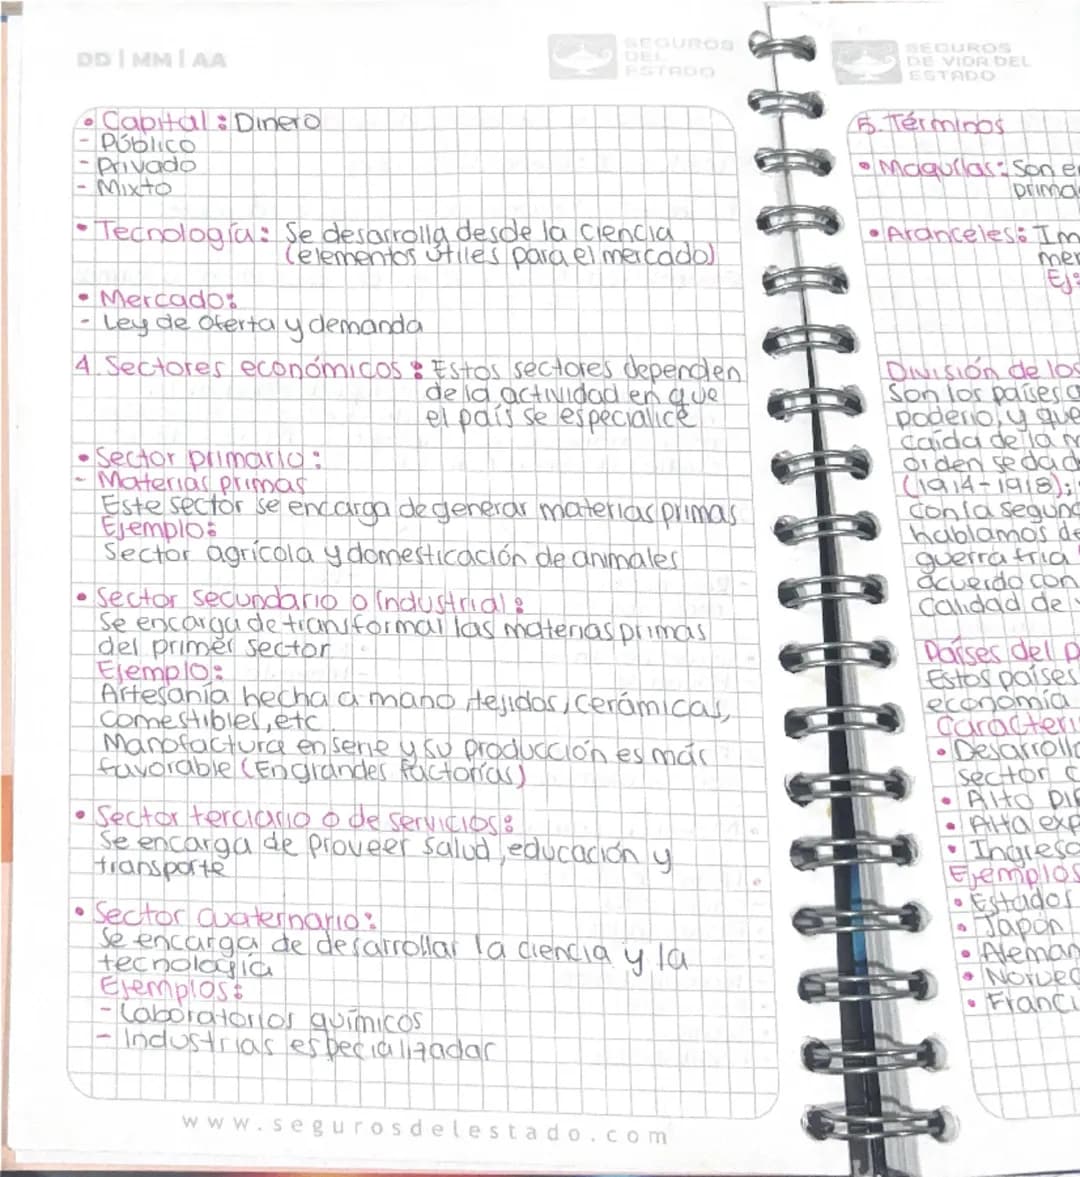 DD | MM | AA
SEGUROS
DEL
ESTADO
• Capital: Dinero
- Público
- Privado
- Mixto
• Tecnología: Se desarrolla desde la ciencia
(elementos útiles para el mercado)
• Mercado:
- Ley de Oferta y demanda
4. Sectores económicos: Estos sectores dependen
de la actividad en que
el país se especialice
• Sector primario:
- Materias primas
Este sector se encarga de generar materias primas
Ejemplo:
Sector agrícola y domesticación de animales
• Sector secundario o industrial:
Se encarga de transformar las materias primas
del primer sector
Ejemplo:
Artesanía hecha a mano, tejidos, cerámicas,
comestibles, etc
Manofactura en serie y su producción es más
favorable (En grandes factorías)
• Sector terciario o de servicios:
Se encarga de proveer salud, educación y
transporte
• Sector cuaternario:
Se encarga de desarrollar la ciencia y la
tecnología
Ejemplos:
- Laboratorios químicos
- Industrias especializadas
www.segurosdelestado.com
SEGUROS
DE VIDA DEL
ESTADO
5. Términos
• Maquilas: Son e
prima
• Aranceles: Im
mer
Ej:
División de los
Son los países
poderío, y que
caída de la
orden se da d
(1914-1918);
con la segun
hablamos de
guerra fría
acuerdo con
calidad de
Países del p
Estos países
economía
Caracterí
• Desarrollo
sector c
• Alto PI
• Alta exp
• Ingreso
Ejemplos
• Estados
• Japón
• Aleman
• Norueg
• Franci